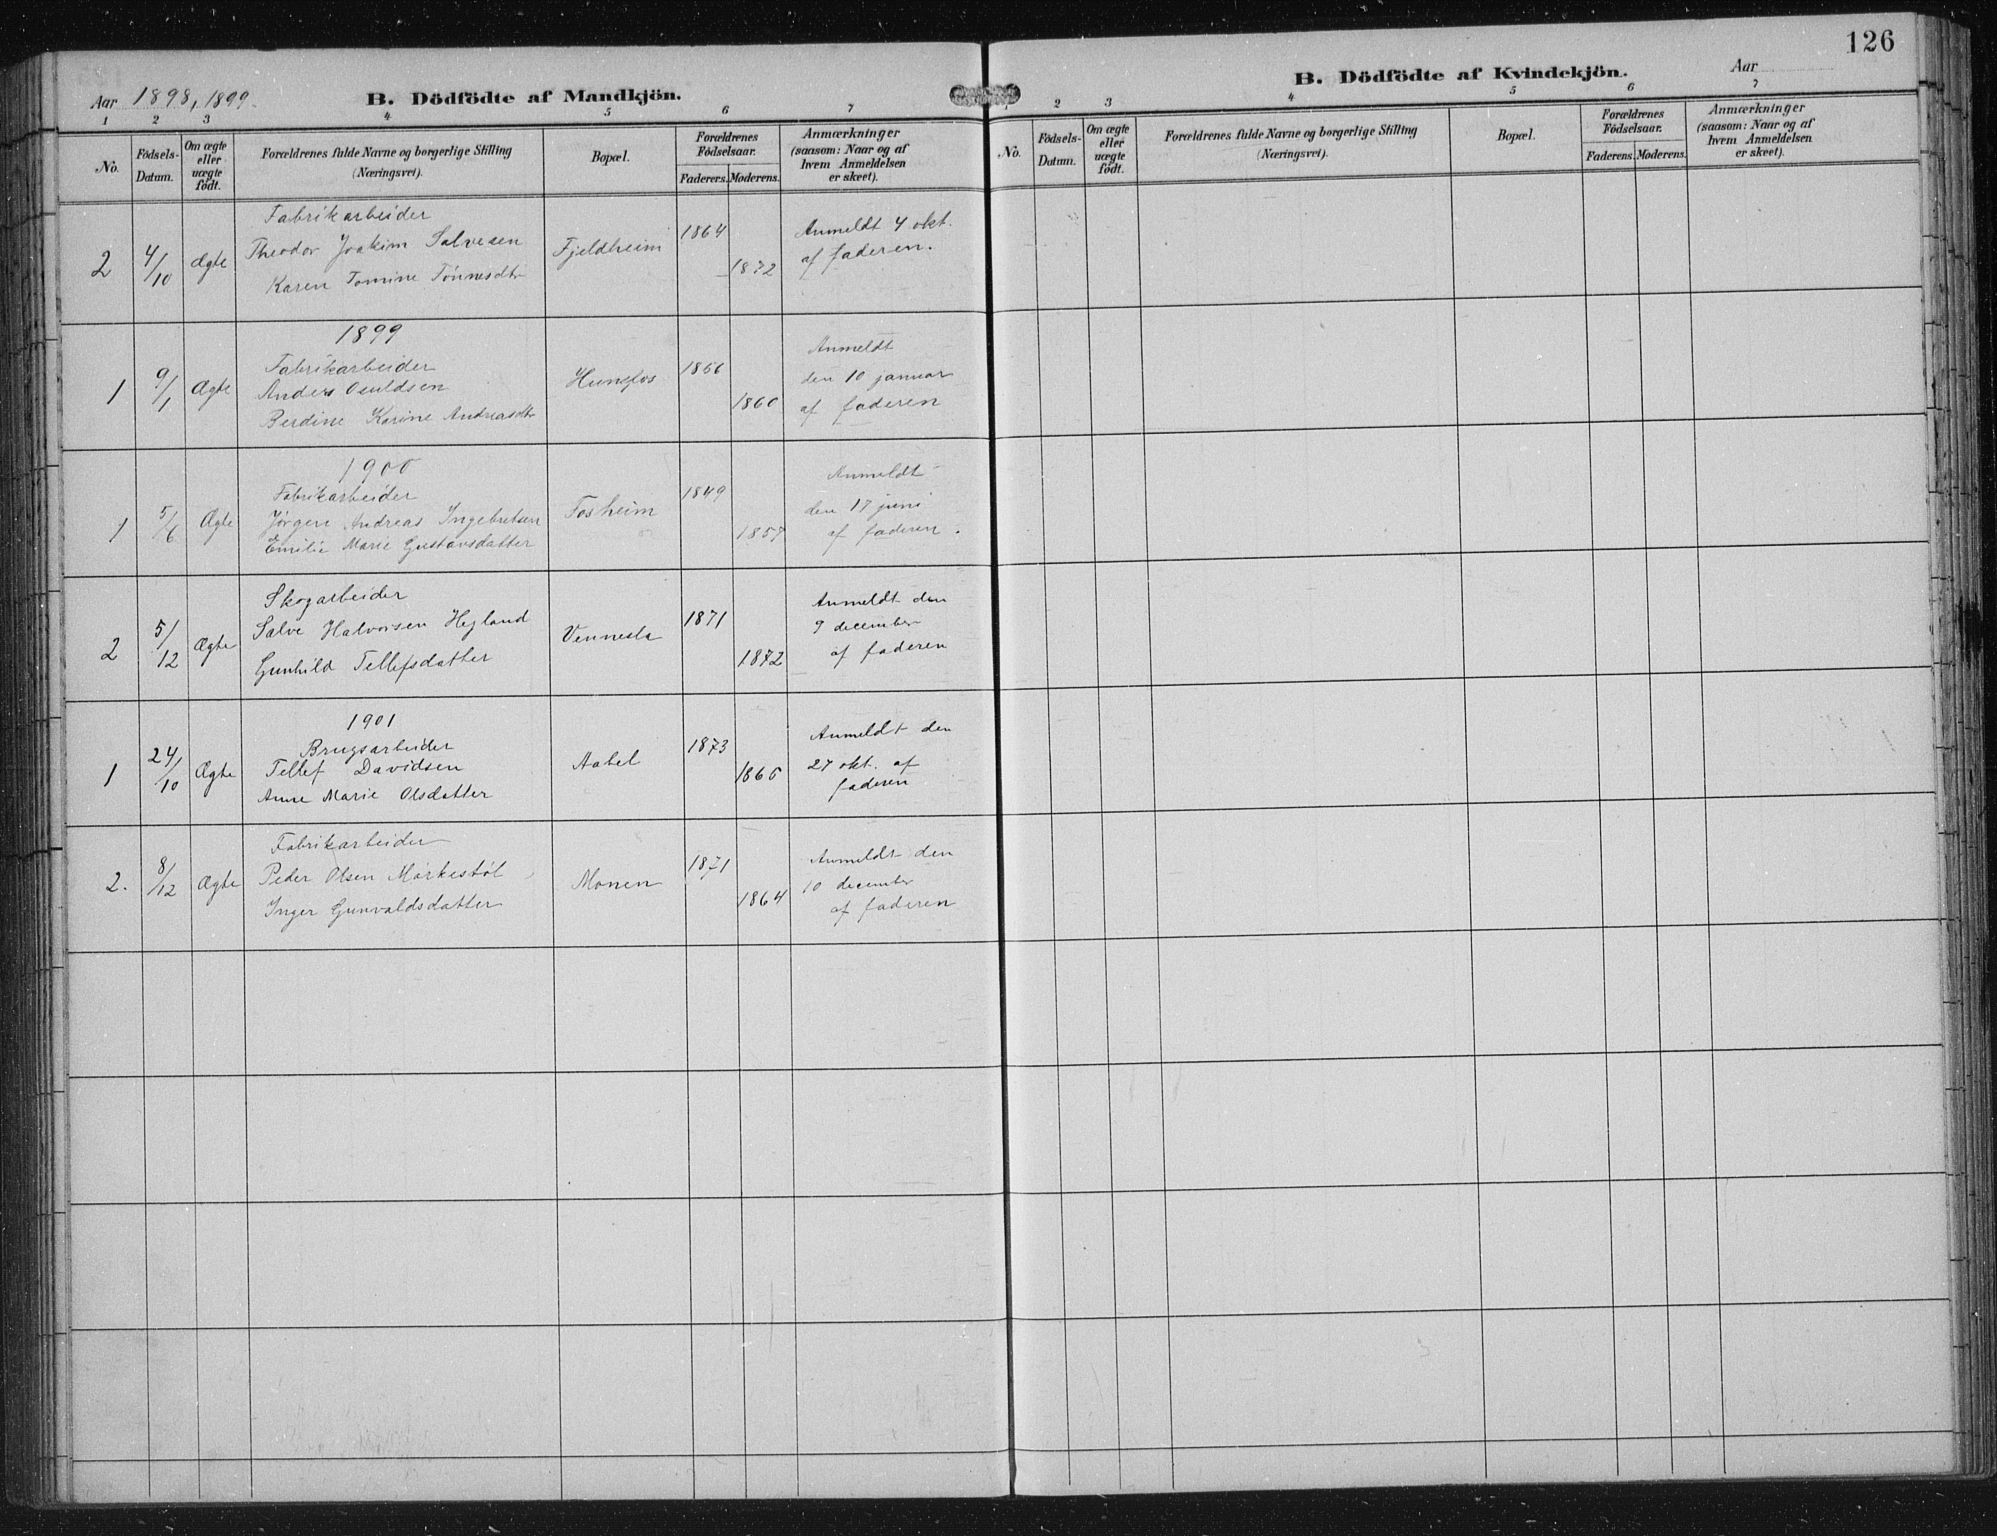 126
Aar 1898, 1899.
B. Dödfödte af Mandkjön.
1 2 3 4 5 6 7
No.
Födsels-Datum.
Om ægte eller uægte födt.
Forældrenes fulde Navne og borgerlige Stilling
(Næringsvei).
Bopæl.
Forældrenes Födselsaar.
Faderens. Moderens.
Anmærkninger
(saasom: Naar og af
hvem Anmeldelsen
er skeet).
Fabrikarbeider
2 4/10 Ægte Theodor Joakim Salvesen Fjeldheim 1864 Anmeldt 4 okt.
Karen Tomine Tönnesdtr 1872 af faderen.
1899
Fabrikarbeider
1 9/1 Ægte Anders Osuldsen Hunsfos 1856 Anmeldt
den 10 januar
Berdine Karine Andreasdtr 1860 af faderen
1900
Fabrikarbeider
1 5/6 Ægte Jörgen Andreas Ingebretsen Fosheim 1849 Anmeldt
den 17 juni
Emilie Marie Gustavsdatter 1857 af faderen.
Skogarbeider
2 5/12 Ægte Salve Halvorsen Hegland Vennesla 1871 Anmeldt den
9 december
Gunhild Tellefsdatter 1872 af faderen
1901
Brugsarbeider
1 24/10 Ægte Tellef Davidsen Aabel 1873 Anmeldt den
27 okt. af
Anne Marie Olsdatter faderen
Fabrikarbeider
2. 8/12 Ægte Peder Olsen Mörkestöl Monen 1871 Anmeldt den
10 december
Inger Gunvaldsdatter 1864 af faderen
B. Dödfödte af Kvindekjön.
Aar
1 2 3 4 5 6 7
No.
Födsels-Datum.
Om ægte eller uægte födt.
Forældrenes fulde Navne og borgerlige Stilling
(Næringsvei).
Bopæl.
Forældrenes Födselsaar.
Faderens. Moderens.
Anmærkninger
(saasom: Naar og af
hvem Anmeldelsen
er skeet).